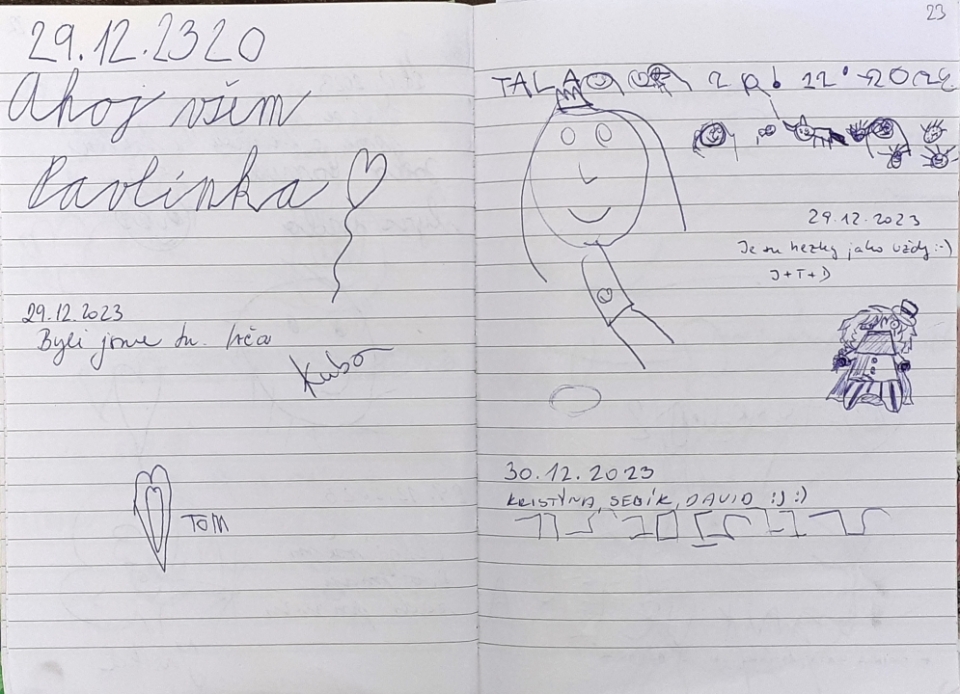 29.12.2320
Ahoj všem
Pavlínka
29.12.2023
Byli jsme tu.
Kuba
TOM
23
TALA
29.12.2023
Je tu hezky jako vždy :-)
J+T+D
30.12.2023
KRISTÝNA, SEBÍK, DAVID :) :)